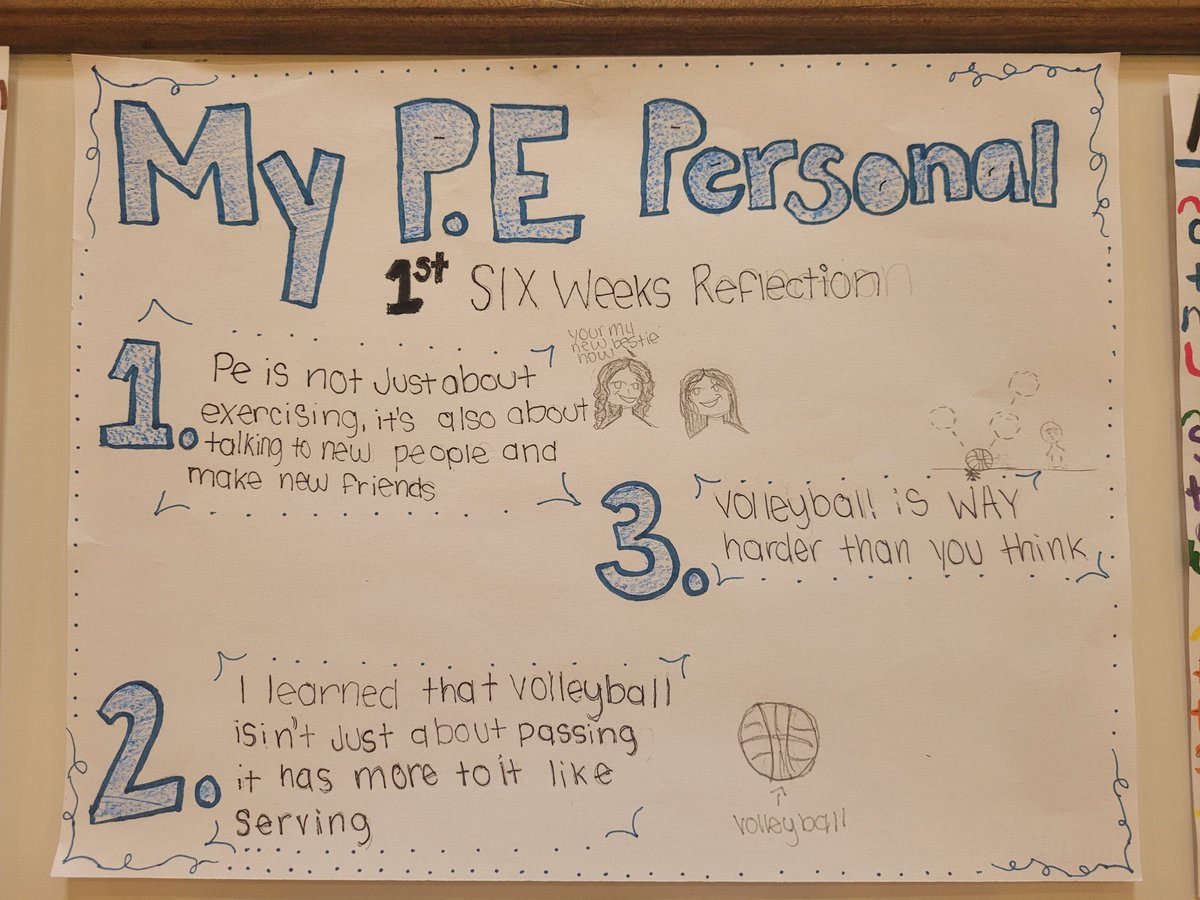 My P.E Personal
1st SIX Weeks Reflection
1.
Pe is not Just about
exercising, it's also about
talking to new people and
make new friends
your my
new bestie
now
3.
Volleyball is WAY
harder than you think
2.
I learned that volleyball
isin't Just about passing
it has more to it like
Serving
volleyball